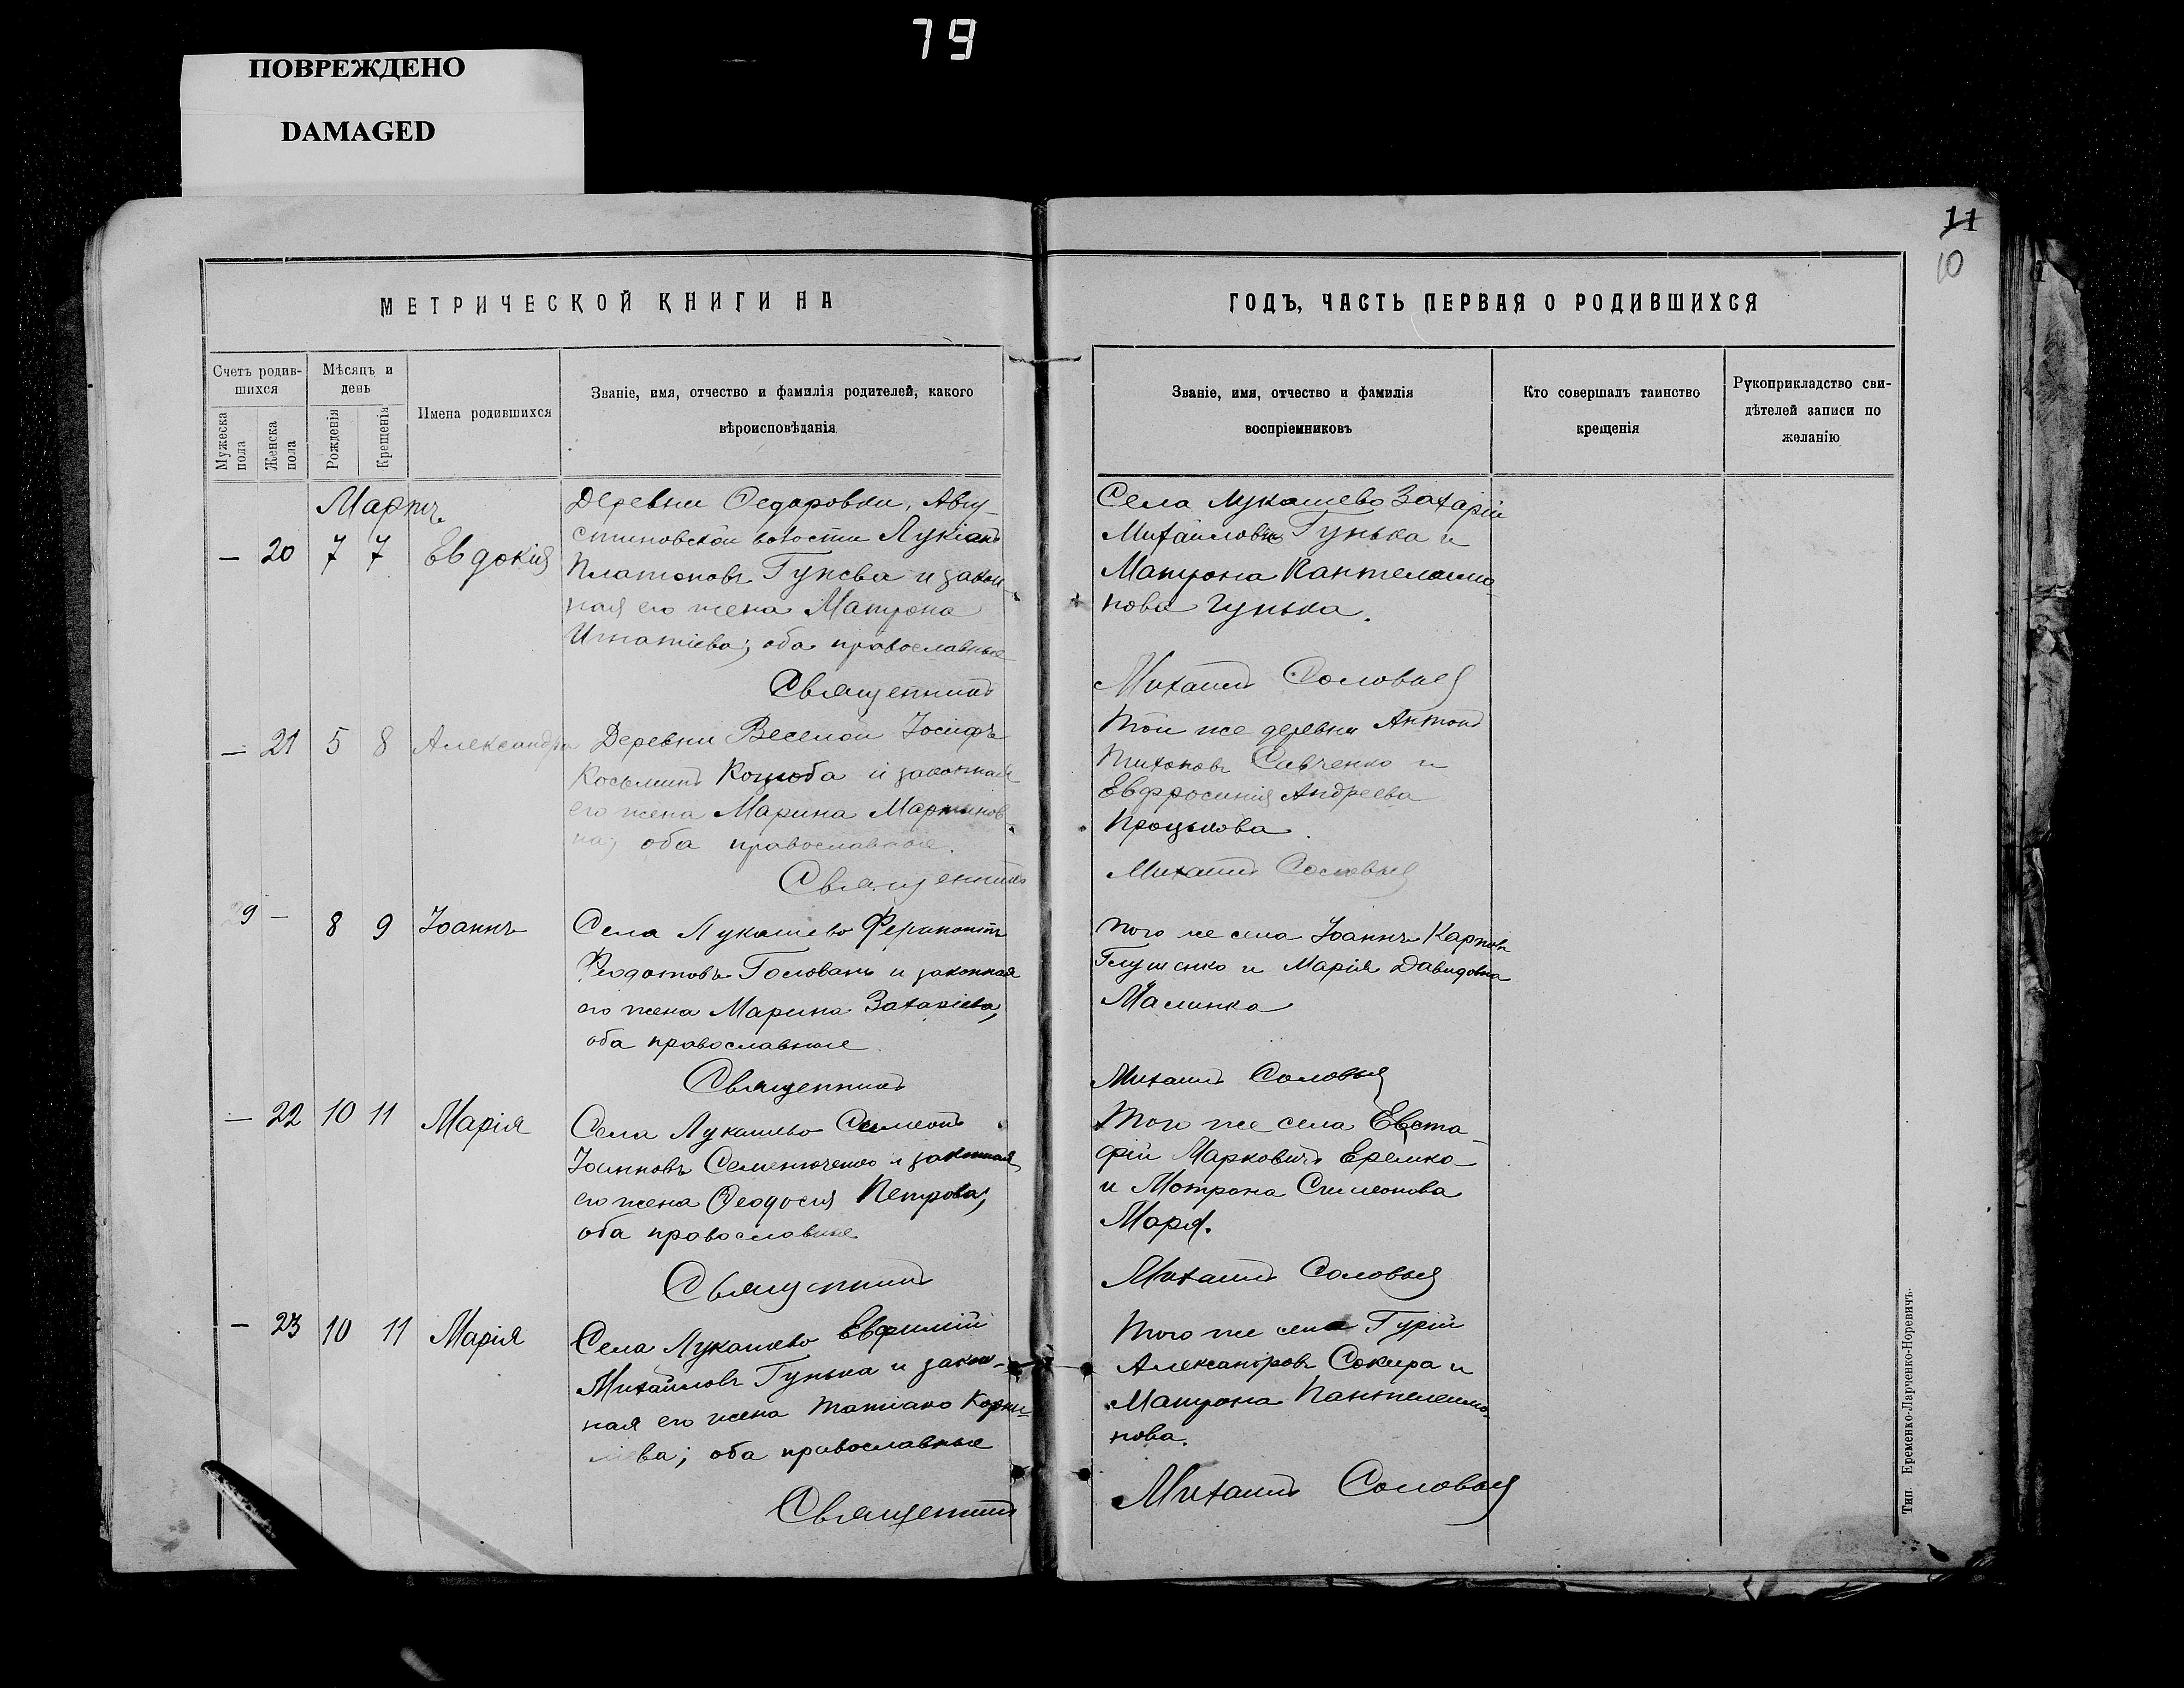 79
ПОВРЕЖДЕНО
DAMAGED
11
10
МЕТРИЧЕСКОЙ КНИГИ НА
ГОДЪ, ЧАСТЬ ПЕРВАЯ О РОДИВШИХСЯ
Счетъ родив-
шихся
Мужеска
пола
Женска
пола
Мѣсяцъ и
день
Рожденія
Крещенія
Имена родившихся
Званіе, имя, отчество и фамилія родителей, какого
вѣроисповѣданія
Званіе, имя, отчество и фамилія
воспріемниковъ
Кто совершалъ таинство
крещенія
Рукоприкладство сви-
дѣтелей записи по
желанію
Мартъ
— 20 7 7 Евдокія
Деревни Федоровки, Авгу-
стиновской волости Лукіанъ
Платоновъ Гунька и закон-
ная его жена Матрона
Игнатіева; оба православные
Священникъ
Села Лукашево Захарій
Михайловъ Гунька и
Матрона Пантелеимо-
нова Гунька.
Михаилъ Соловьей
— 21 5 8 Александра
Деревни Веселой Іосифъ
Косьминъ Коцюба и законная
его жена Марина Мартинов-
на; оба православные.
Священникъ
Той же деревни Антонъ
Тихоновъ Савченко и
Евфросинія Андреева
Процькова.
Михаилъ Соловьей
29 — 8 9 Іоаннъ
Села Лукашево Ферапонтъ
Феодотовъ Головань и законная
его жена Марина Захаріева,
оба православные
Священникъ
того же села Іоаннъ Карповъ
Глушенко и Марія Давидовна
Малинка
Михаилъ Соловьей
— 22 10 11 Марія
Села Лукашево Симеонъ
Іоанновъ Семенюченко и законная
его жена Феодосія Петрова;
оба православные
Священникъ
Того же села Евста-
фій Марковичъ Еремко
и Мотрона Симеонова
Михаилъ Соловьей
— 23 10 11 Марія
Села Лукашево Евфимій
Михайловъ Гунька и закон-
ная его жена Татіана Корни-
ліева; оба православные
Священникъ
Того же села Гурій
Александровъ Сокира и
Матрона Пантелеимо-
нова.
Михаилъ Соловьей
Тип. Еременко-Ларченко-Норевичъ.